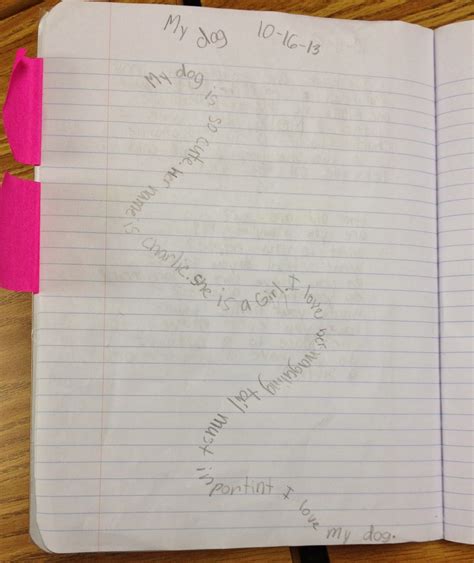 My dog 10-16-13
My dog is so cute. Her name is charlie. she is a Girl. I love her wagging tail must importint I love my dog.